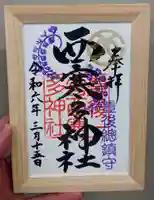 奉拝
豊後總鎮守
西寒多神社
令和六年三月十五日